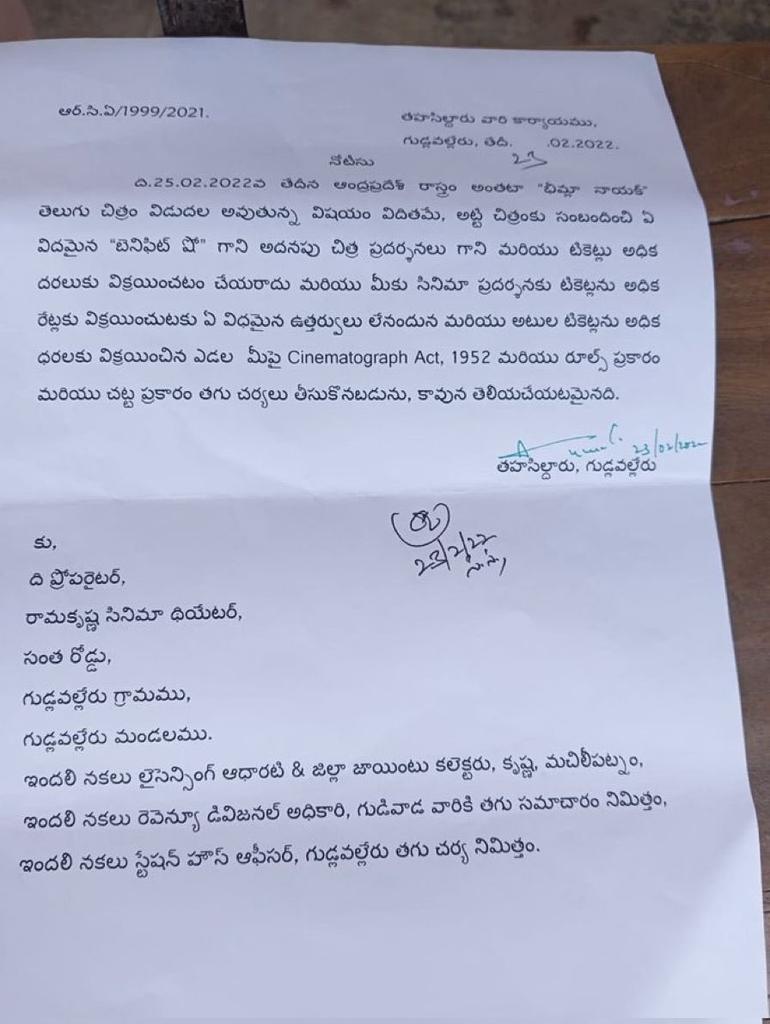 ఆర్.సి.ఏ/1999/2021.
తహసిల్దారు వారి కార్యాయము,
గుడ్లవల్లేరు, తేది. 23 .02.2022.
నోటీసు
ది.25.02.2022వ తేదిన ఆంద్రప్రదేశ్ రాస్త్రం అంతటా "భీమ్లా నాయక్"
తెలుగు చిత్రం విడుదల అవుతున్న విషయం విదితమే, అట్టి చిత్రంకు సంబందించి ఏ
విదమైన "బెనిఫిట్ షో" గాని అదనపు చిత్ర ప్రదర్శనలు గాని మరియు టికెట్లు అధిక
దరలుకు విక్రయించటం చేయరాదు మరియు మీకు సినిమా ప్రదర్శనకు టికెట్లను అధిక
రేట్లకు విక్రయించుటకు ఏ విధమైన ఉత్తర్వులు లేనందున మరియు అటుల టికెట్లను అధిక
ధరలకు విక్రయించిన ఎడల మీపై Cinematograph Act, 1952 మరియు రూల్స్ ప్రకారం
మరియు చట్ట ప్రకారం తగు చర్యలు తీసుకొనబడును, కావున తెలియచేయటమైనది.
23/02/202
తహసిల్దారు, గుడ్లవల్లేరు
23/2/22
కు,
ది ప్రోపరైటర్,
రామకృష్ణ సినిమా థియేటర్,
సంత రోడ్డు,
గుడ్లవల్లేరు గ్రామము,
గుడ్లవల్లేరు మండలము.
ఇందలి నకలు లైసెన్సింగ్ ఆధారటి & జిల్లా జాయింటు కలెక్టరు, కృష్ణ, మచిలీపట్నం,
ఇందలి నకలు రెవెన్యూ డివిజనల్ అధికారి, గుడివాడ వారికి తగు సమాచారం నిమిత్తం,
ఇందలి నకలు స్టేషన్ హౌస్ ఆఫీసర్, గుడ్లవల్లేరు తగు చర్య నిమిత్తం.